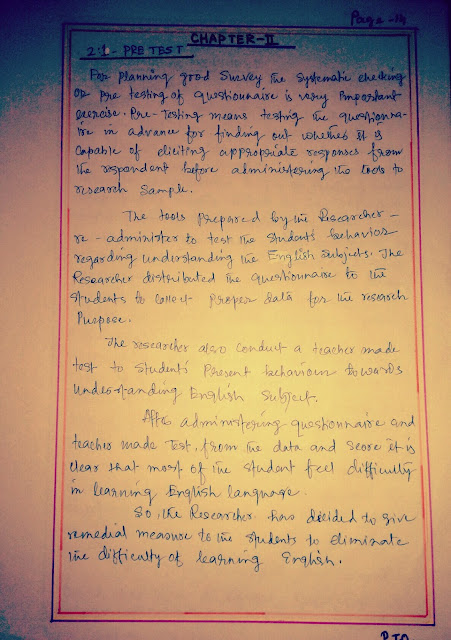 Page - 14
CHAPTER-II
2:1 - PRE TEST
For planning good Survey the Systematic checking
or pre testing of questionnaire is very important
exercise. Pre-Testing means testing the questionna-
ire in advance for finding out whether it is
capable of eliciting appropriate responses from
the respondent before administering the tools to
research Sample.
The tools prepared by the Researcher -
re - administer to test the Students behavior
regarding understanding the English Subjects. The
Researcher distributed the questionnaire to the
students to collect proper data for the research
Purpose.
The researcher also conduct a teacher made
test to Students Present behaviour towards
understanding English Subject.
After administering questionnaire and
teacher made Test, from the data and Score it is
clear that most of the student feel difficulty
in learning English language.
So, the Researcher has decided to give
remedial measure to the students to eliminate
the difficulty of learning English.
PTO